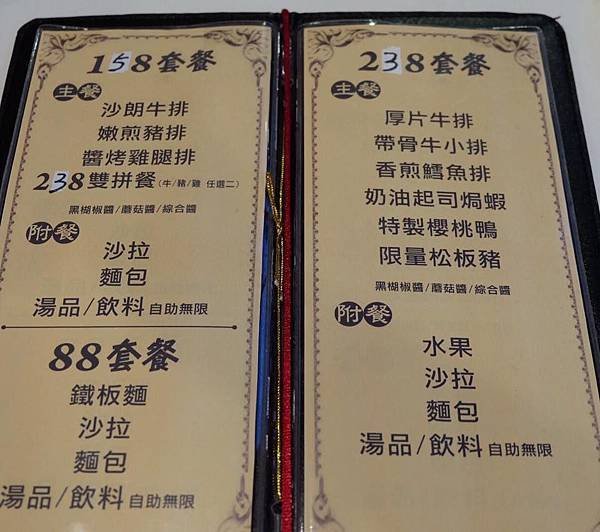 158套餐
主餐
沙朗牛排
嫩煎豬排
醬烤雞腿排
238雙拼餐(牛/豬/雞 任選二)
黑楜椒醬/蘑菇醬/綜合醬
附餐
沙拉
麵包
湯品/飲料自助無限
88套餐
鐵板麵
沙拉
麵包
湯品/飲料自助無限
238套餐
主餐
厚片牛排
帶骨牛小排
香煎鱈魚排
奶油起司焗蝦
特製櫻桃鴨
限量松板豬
黑楜椒醬/蘑菇醬/綜合醬
附餐
水果
沙拉
麵包
湯品/飲料自助無限